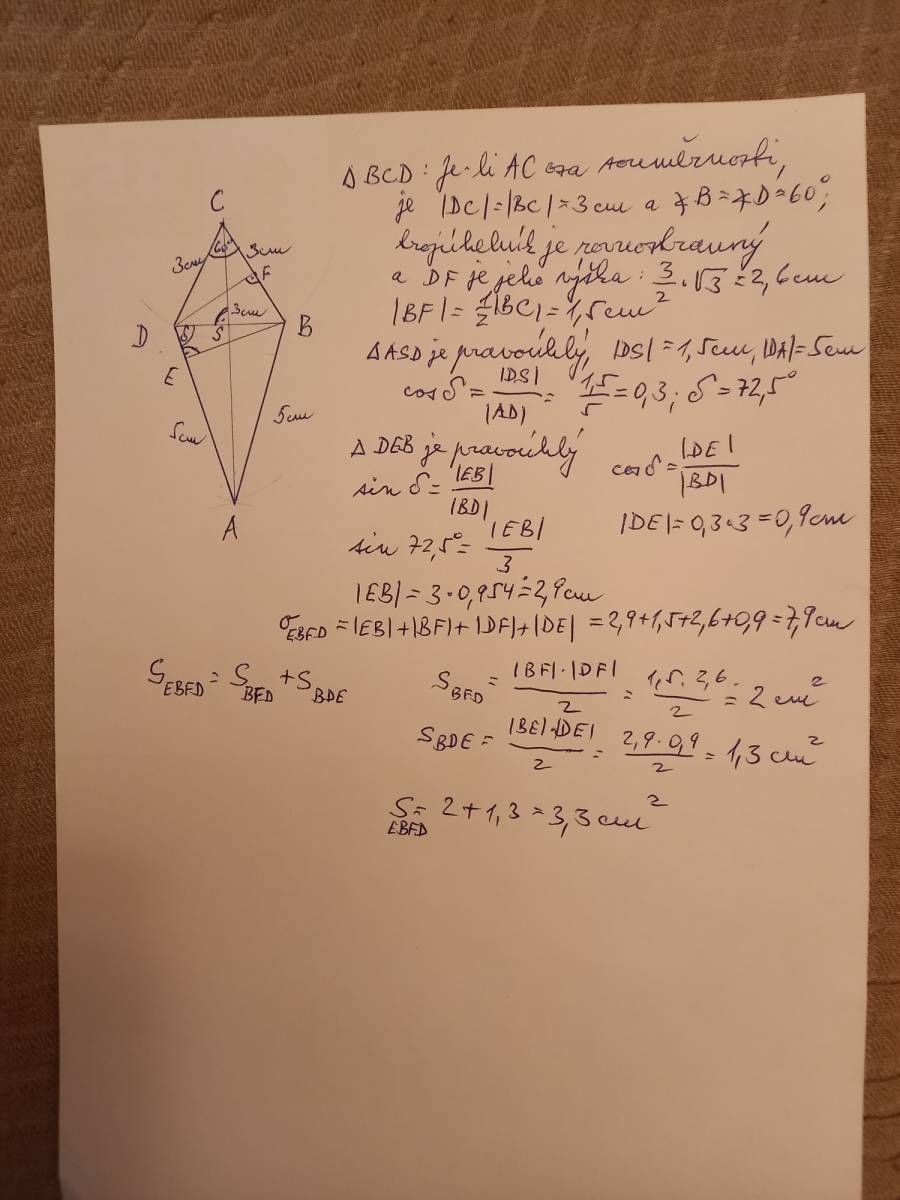 C
60°
3cm
3cm
F
3cm
D
δ
S
B
E
5cm
5cm
A
Δ BCD: Je-li AC osa souměrnosti,
je |DC|=|BC|=3cm a ∢B=∢D=60°;
trojúhelník je rovnostranný
a DF je jeho výška: 3/2 · √3 = 2,6 cm
|BF| = 1/2 |BC| = 1,5 cm
Δ ASD je pravoúhlý, |DS| = 1,5cm, |DA|=5cm
cos δ = |DS|/|AD| = 1,5/5 = 0,3; δ = 72,5°
Δ DEB je pravoúhlý
sin δ = |EB|/|BD|
cos δ = |DE|/|BD|
sin 72,5° = |EB|/3
|DE| = 0,3·3 = 0,9cm
|EB| = 3·0,954 ≐ 2,9cm
σEBFD = |EB|+|BF|+|DF|+|DE| = 2,9+1,5+2,6+0,9 = 7,9cm
SEBFD = SBFD + SBDE
SBFD = |BF|·|DF|/2 = 1,5·2,6/2 = 2 cm²
SBDE = |BE|·|DE|/2 = 2,9·0,9/2 = 1,3 cm²
SEBFD = 2+1,3 = 3,3 cm²